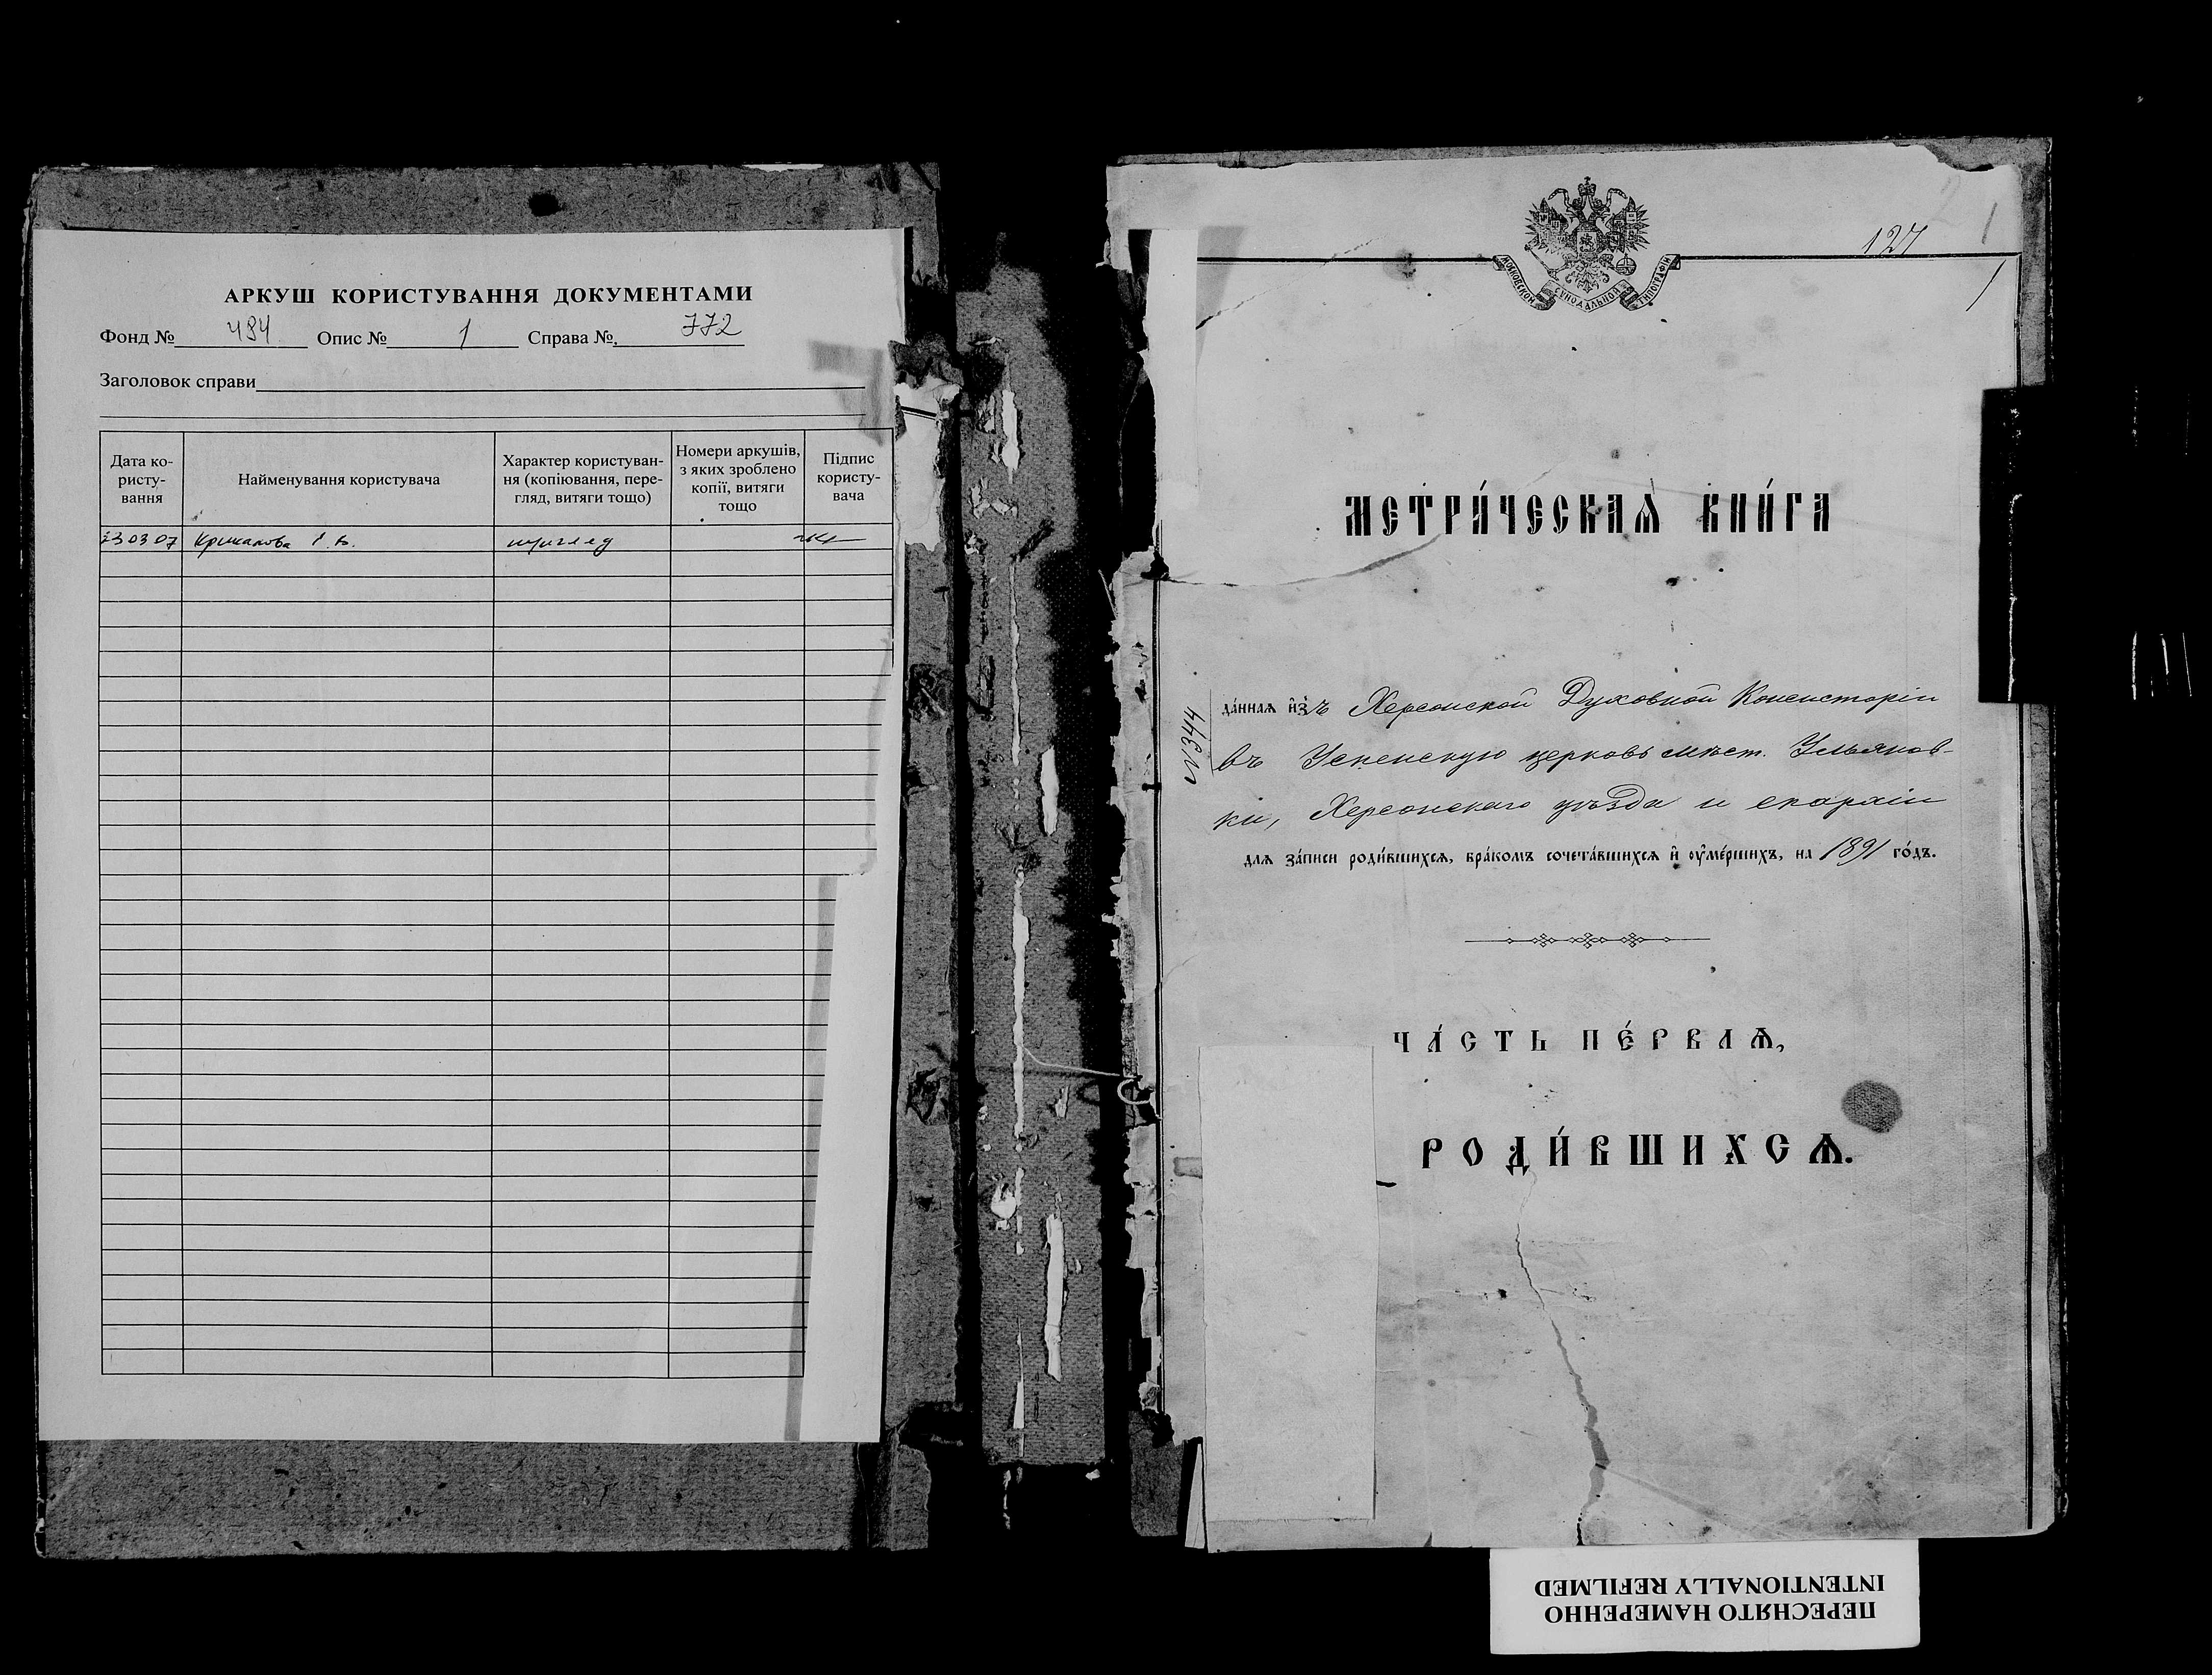 АРКУШ КОРИСТУВАННЯ ДОКУМЕНТАМИ
Фонд № 484 Опис № 1 Справа № 772
Заголовок справи
Дата ко-
ристу-
вання
Найменування користувача
Характер користуван-
ня (копіювання, пере-
гляд, витяги тощо)
Номери аркушів,
з яких зроблено
копії, витяги
тощо
Підпис
користу-
вача
23 03 07
127
1
1
МОСКОВСКОЙ СѴНОДАЛЬНОЙ ТИПОГРАФІИ
МЕТРИ́ЧЕСКАѦ КНИ́ГА
№344
да́ннаѧ и҆́зъ Херсонской Духовной Консисторіи
въ Успенскую церковь мѣст. Ульянов-
ки, Херсонскаго уѣзда и епархіи
длѧ за́писи роди́вшихсѧ, бра́комъ сочета́вшихсѧ и҆ оумéршихъ, на 1891 го́дъ.
ЧА́СТЬ ПЕ́РВАѦ,
РОДИ́ВШИХСѦ.
ПЕРЕСНЯТО НАМЕРЕННО
INTENTIONALLY REFILMED